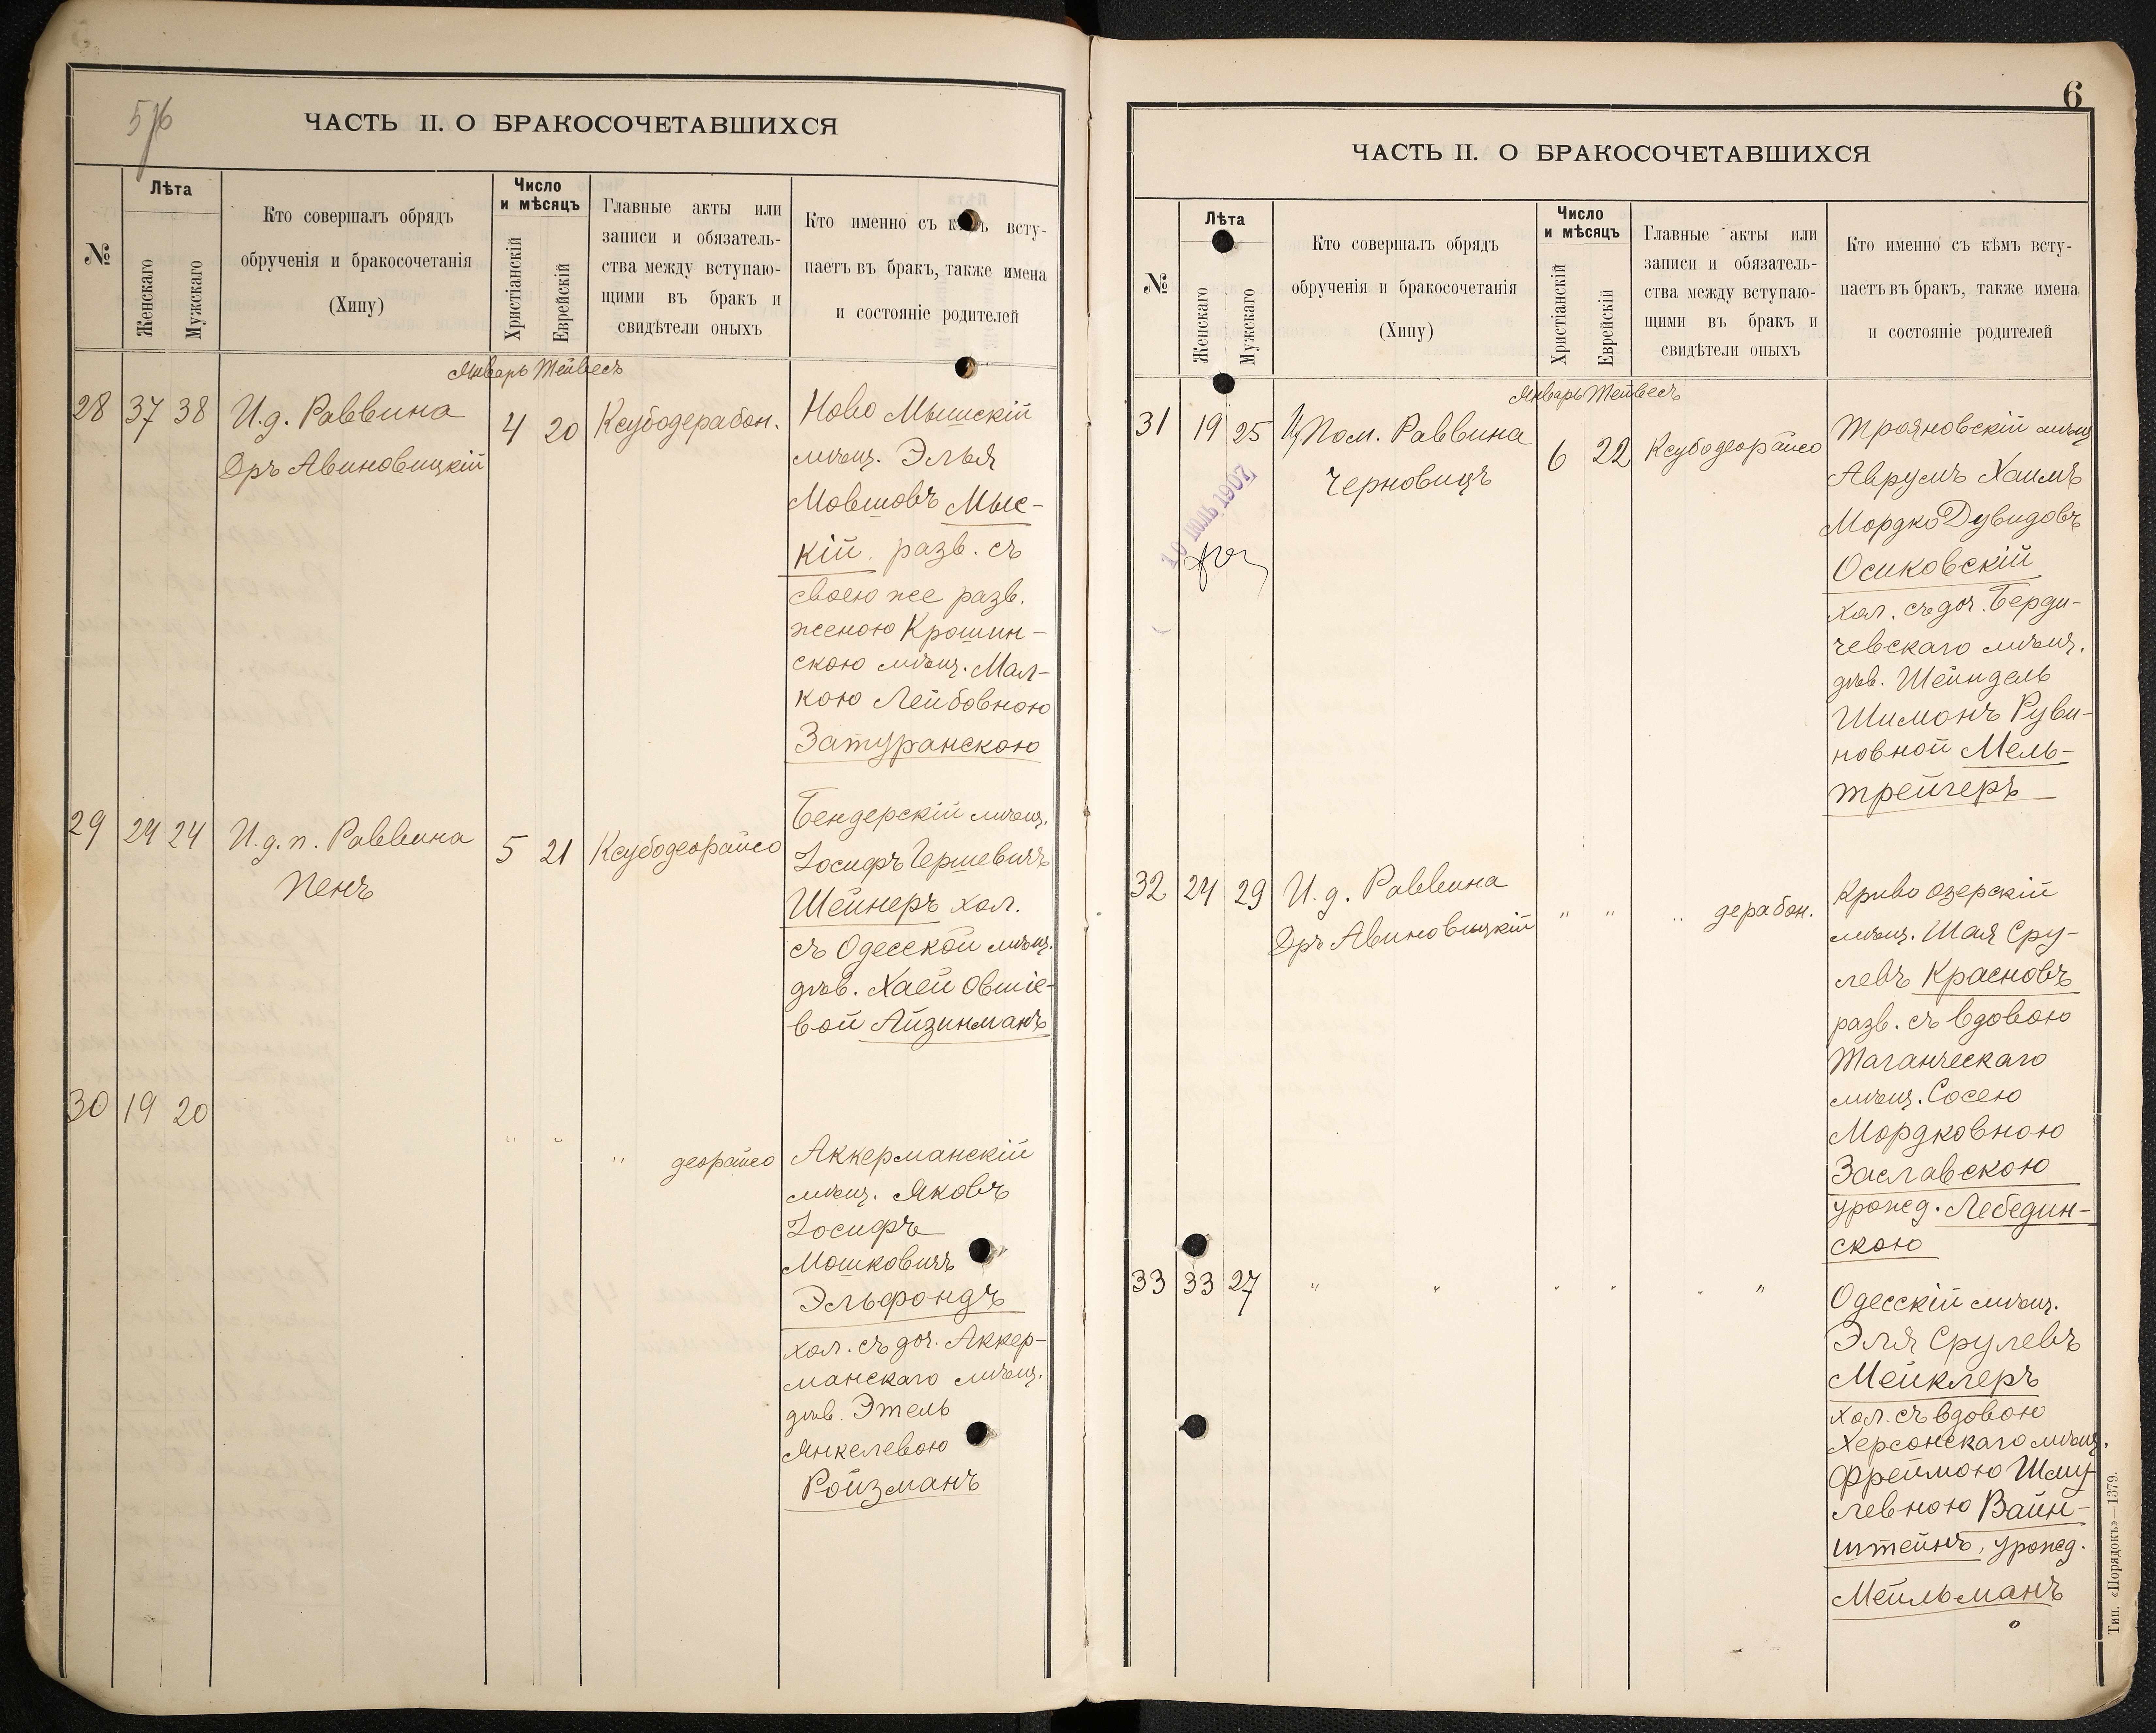 5/6
ЧАСТЬ II. О БРАКОСОЧЕТАВШИХСЯ
№
Лѣта
Женскаго
Мужскаго
Кто совершалъ обрядъ
обрученія и бракосочетанія
(Хипу)
Число
и мѣсяцъ
Христіанскій
Еврейскій
Главные акты или
записи и обязатель-
ства между вступаю-
щими въ бракъ и
свидѣтели оныхъ
Кто именно съ къ всту-
паетъ въ бракъ, также имена
и состояніе родителей
Январь Тейвесъ
28 37 38
И.д. Раввина
Дръ Авиновицкій
4 20
Ксубодерабон.
Ново Мышскій
мѣщ. Элья
Мовшовъ Мыс-
кій. разв. съ
своею же разв.
женою Крошин-
скою мѣщ. Мал-
кою Лейбовною
Затуранскою
29 24 24
И.д.п. Раввина
Пенъ
5 21
Ксубодеорайсо
Бендерскій мѣщ.
Іосифъ Гершевичъ
Шейнеръ хол.
съ Одесской мѣщ.
дѣв. Хаей Овшіе-
вой Айзинманъ
30 19 20
" "
" деорайсо
Аккерманскій
мѣщ. Яковъ
Іосифъ
Мошковичъ
Эльфондъ
хол. съ доч. Аккер-
манскаго мѣщ.
дѣв. Этель
Янкелевою
Ройзманъ
6
ЧАСТЬ II. О БРАКОСОЧЕТАВШИХСЯ
№
Лѣта
Женскаго
Мужскаго
Кто совершалъ обрядъ
обрученія и бракосочетанія
(Хипу)
Число
и мѣсяцъ
Христіанскій
Еврейскій
Главные акты или
записи и обязатель-
ства между вступаю-
щими въ бракъ и
свидѣтели оныхъ
Кто именно съ кѣмъ всту-
паетъ въ бракъ, также имена
и состояніе родителей
Январь Тейвесъ
31 19 25
Пом. Раввина
Черновицъ
6 22
Ксубодеорайсо
Трояновскій мѣщ
Аврумъ Хаимъ
Мордко Дувидовъ
Осиковскій
хол. съ доч. Берди-
чевскаго мѣщ.
дѣв. Шейндель
Шимонъ Руви-
новной Мель-
трейгеръ
1907
32 24 29
И.д. Раввина
Дръ Авиновицкій
" "
" дерабон.
Криво озерскій
мѣщ. Шая Сру-
левъ Красновъ
разв. съ вдовою
Таганческаго
мѣщ. Сосею
Мордковною
Заславскою
урожд. Лебедин-
скою
33 33 27
" "
" "
" "
Одесскій мѣщ.
Эля Срулевъ
Мейклеръ
хол. съ вдовою
Херсонскаго мѣщ.
Фреймою Шму-
левною Вайн-
штейнъ, урожд.
Мейльманъ
Тип. «Порядокъ»—1379.